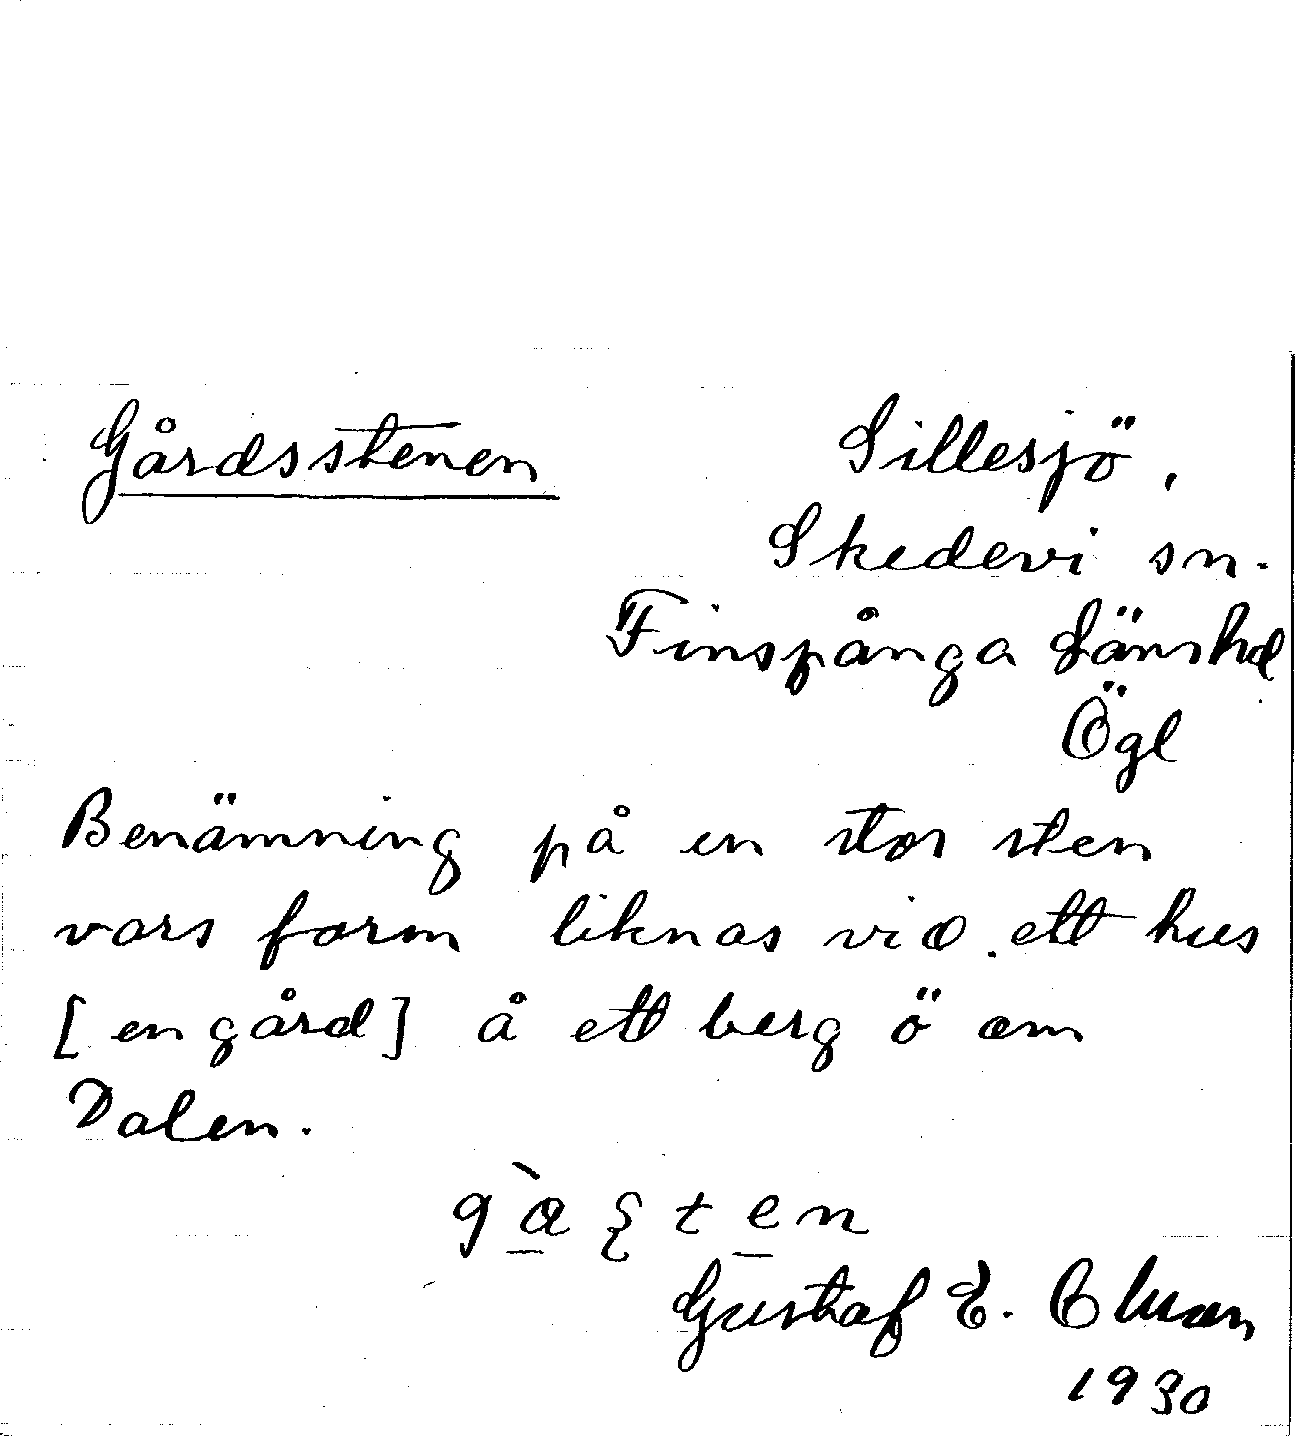 Gårdsstenen
Sillesjö,
Skedevi sn.
Finspånga Länshd
Ögl
Benämning på en stor sten
vars form liknas vid ett hus
[en gård] å ett berg ö om
Dalen.
Gustaf E.
1930